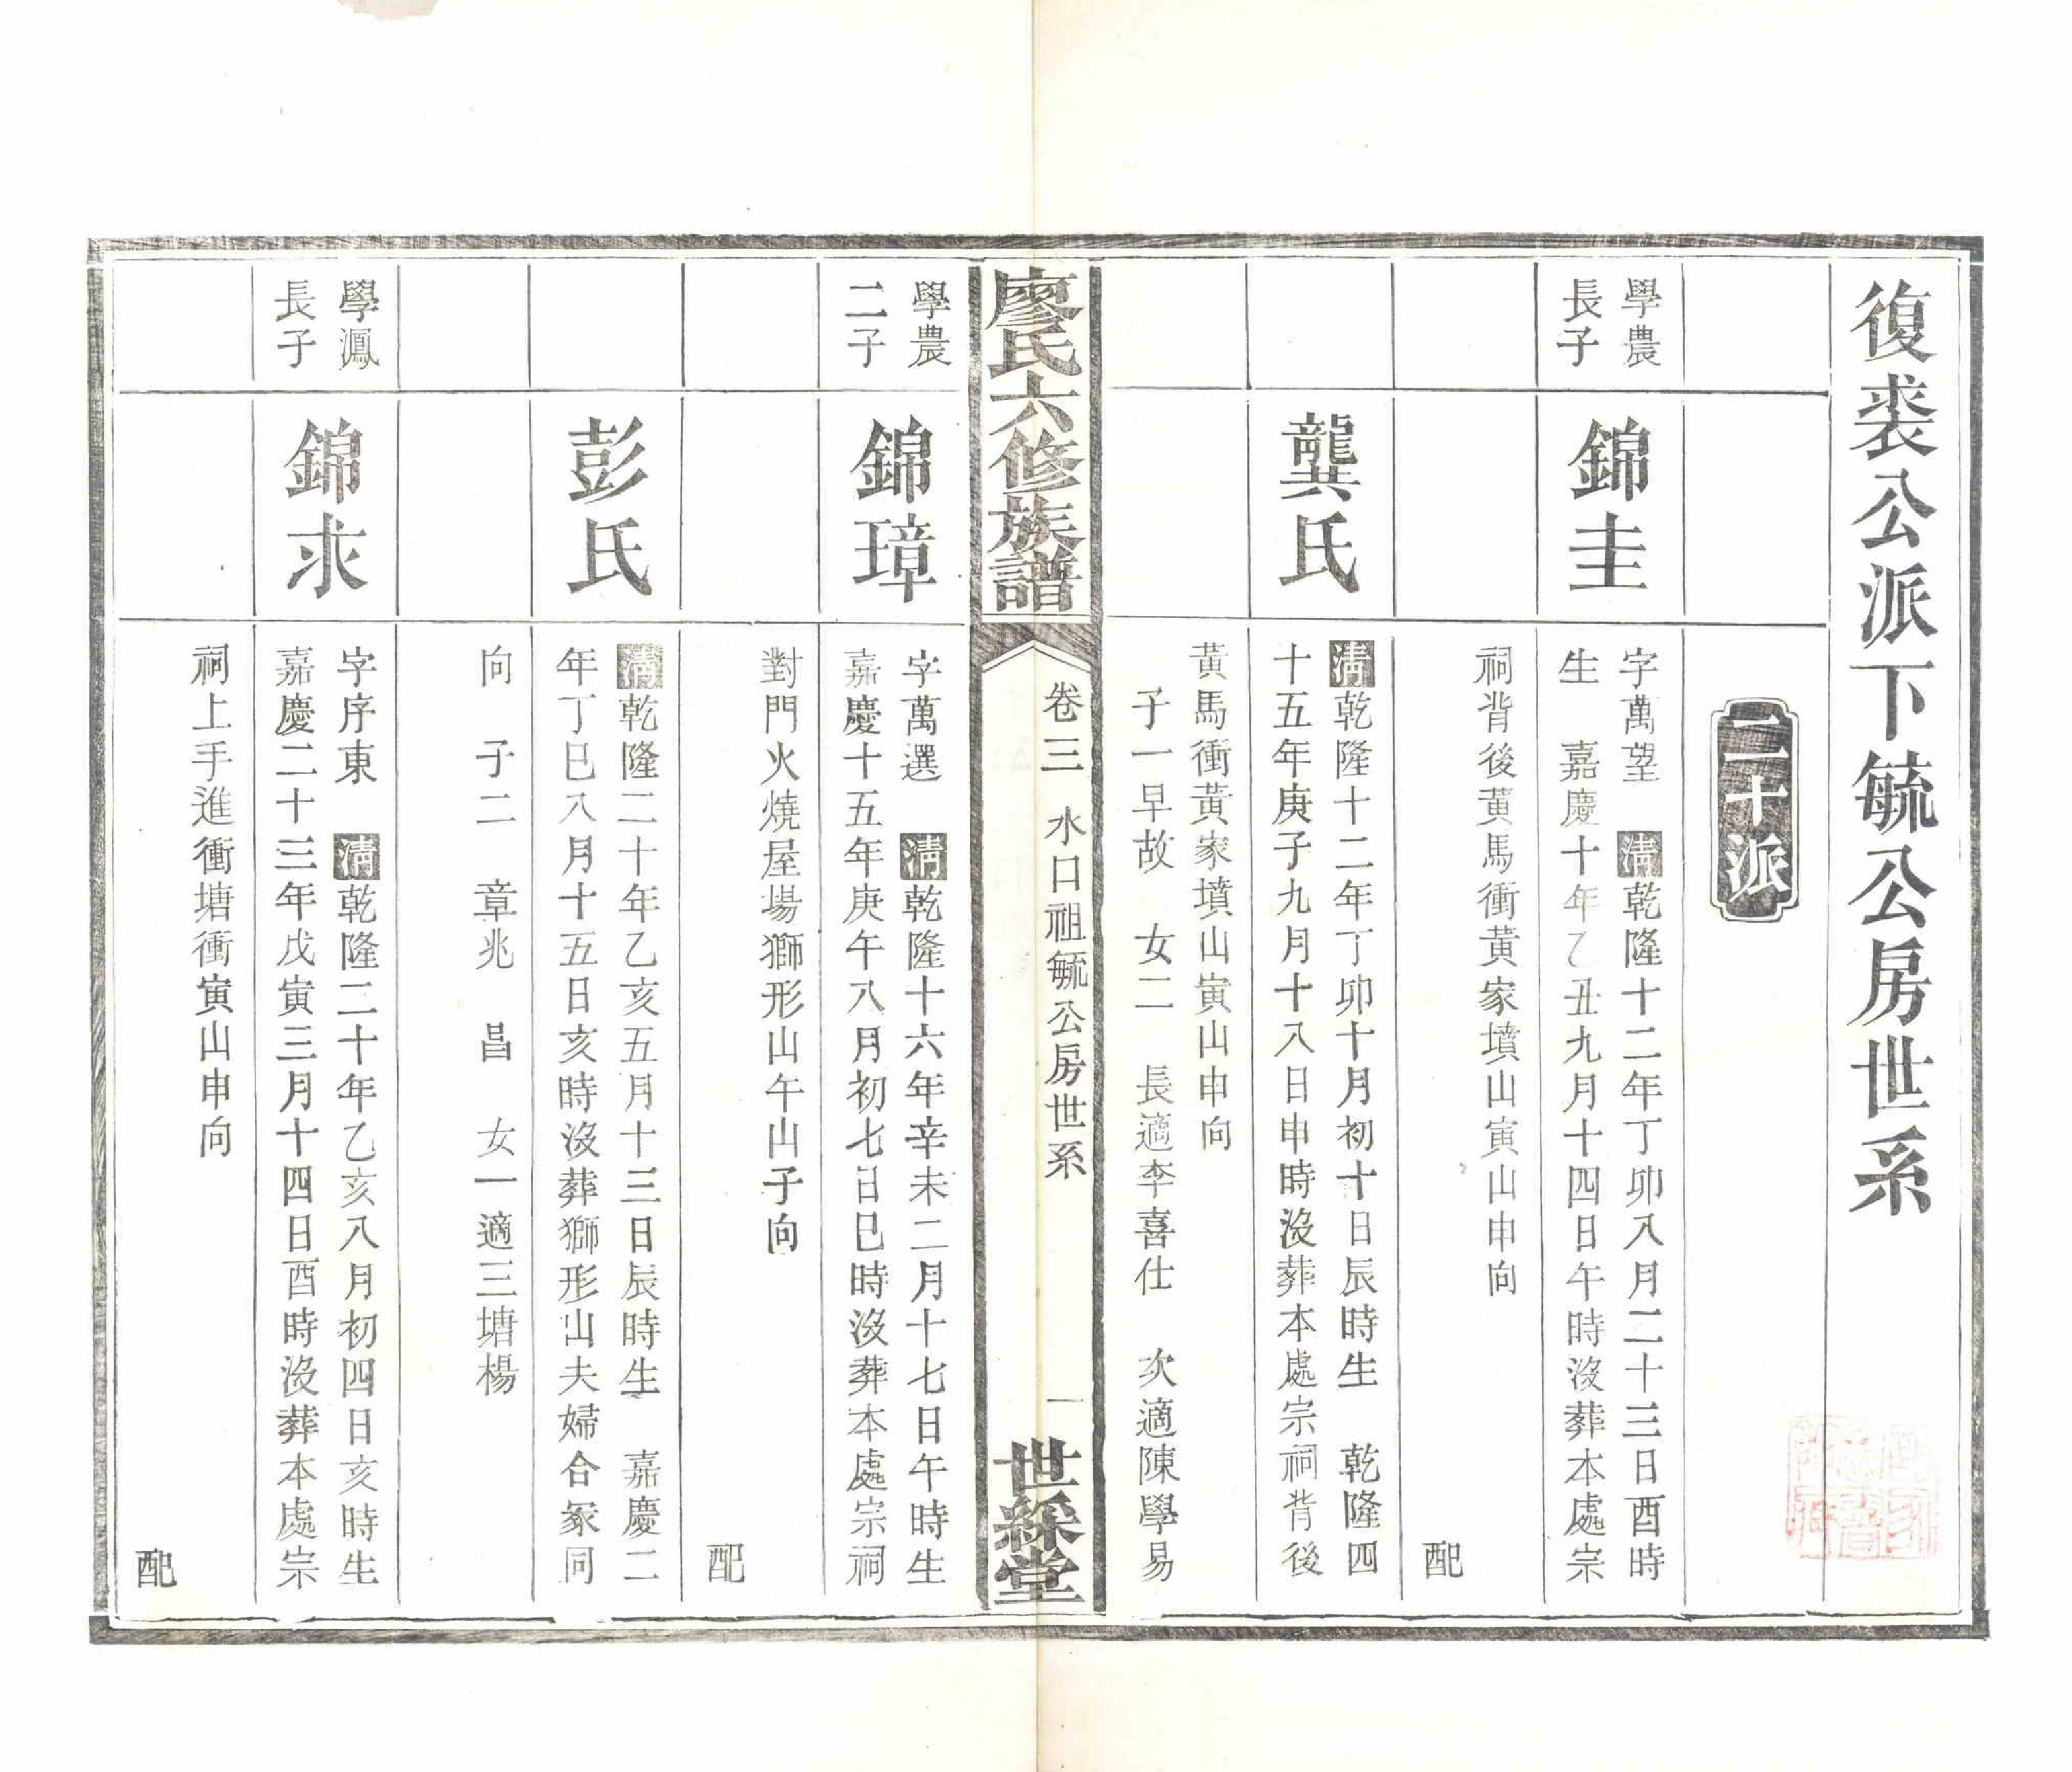 復裘公派下毓公房世系
二十派
學農
長子
錦圭
字萬望 清乾隆十二年丁卯八月二十三日酉時
生 嘉慶十年乙丑九月十四日午時沒葬本處宗
祠背後黃馬衝黃家墳山寅山申向
配
龔氏
清乾隆十二年丁卯十月初十日辰時生 乾隆四
十五年庚子九月十八日申時沒葬本處宗祠背後
黃馬衝黃家墳山寅山申向
子一早故 女二 長適李喜仕 次適陳學易
廖氏六修族譜
卷三 水口祖毓公房世系
一
世綵堂
學農
二子
錦璋
字萬選 清乾隆十六年辛未二月十七日午時生
嘉慶十五年庚午八月初七日巳時沒葬本處宗祠
對門火燒屋場獅形山午山子向
配
彭氏
清乾隆二十年乙亥五月十三日辰時生 嘉慶二
年丁巳八月十五日亥時沒葬獅形山夫婦合冢同
向 子二 章兆 昌 女一適三塘楊
學鳳
長子
錦求
字序東 清乾隆二十年乙亥八月初四日亥時生
嘉慶二十三年戊寅三月十四日酉時沒葬本處宗
祠上手進衝塘衝寅山申向
配